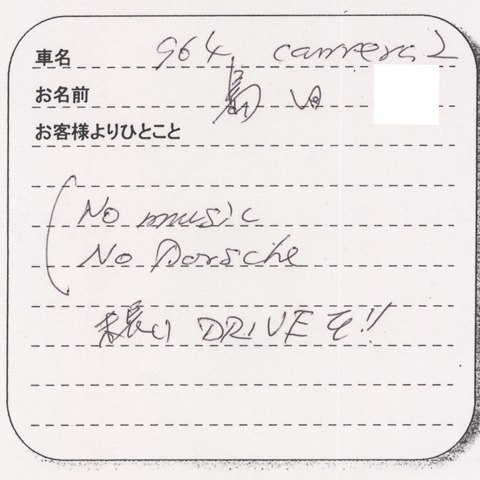 車名 964 carrera2
お名前 島田
お客様よりひとこと
No music
No Porsche
末長い DRIVE を!!